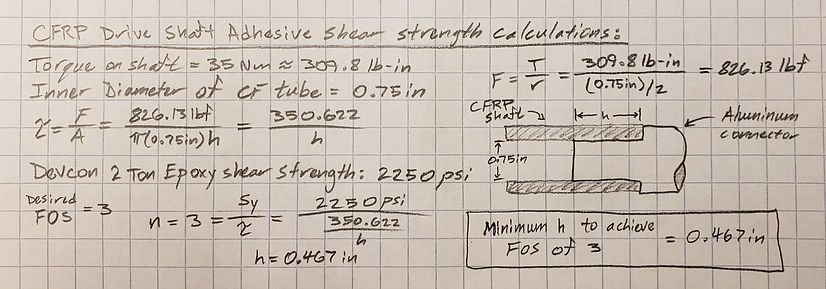 CFRP Drive Shaft Adhesive shear strength calculations:
Torque on shaft = 35 Nm ≈ 309.8 lb-in
Inner Diameter of CF tube = 0.75in
F = T/r = 309.8 lb-in/(0.75in)/2 = 826.13 lbf
τ = F/A = 826.13 lbf/π(0.75in)h = 350.622/h
CFRP shaft
h
Aluminum connector
0.75in
Devcon 2 Ton Epoxy shear strength: 2250psi
Desired FOS = 3
n = 3 = Sy/τ = 2250 psi/(350.622/h)
h = 0.467in
Minimum h to achieve FOS of 3 = 0.467in